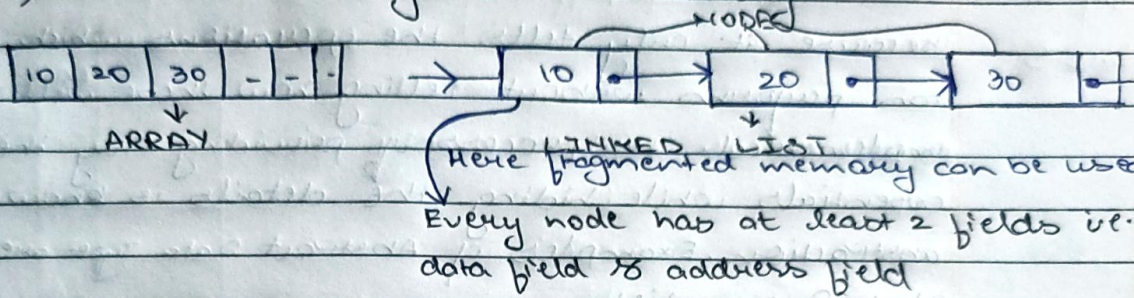 NODES
10 20 30 - - -
10 20 30
ARRAY
LINKED LIST
Here fragmented memory can be use
Every node has at least 2 fields i.e.
data field & address field